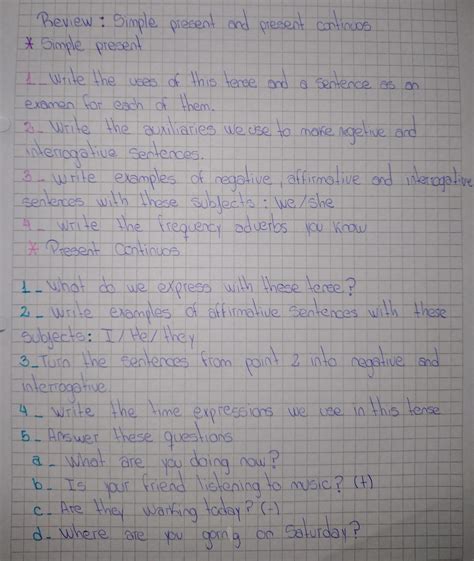 Review : Simple present and present continuos
* Simple present
1_ Write the uses of this tense and a sentence as an
examen for each of them.
2_ Write the auxiliaries we use to make negetive and
interrogative sentences.
3_ Write examples of negative, affirmative and interrogative
sentences with these subjects : we/she
4_ Write the frequency adverbs you know
* Present Continuos
1_ What do we express with these tense?
2_ Write examples of affirmative sentences with these
subjects: I/He/they
3_Turn the sentences from point 2 into negative and
interrogative.
4_ Write the time expressions we use in this tense
5_ Answer these questions
a_ What are you doing now?
b_ Is your friend listening to music? (+)
c_ Are they working today? (-)
d_ Where are you going on Saturday?